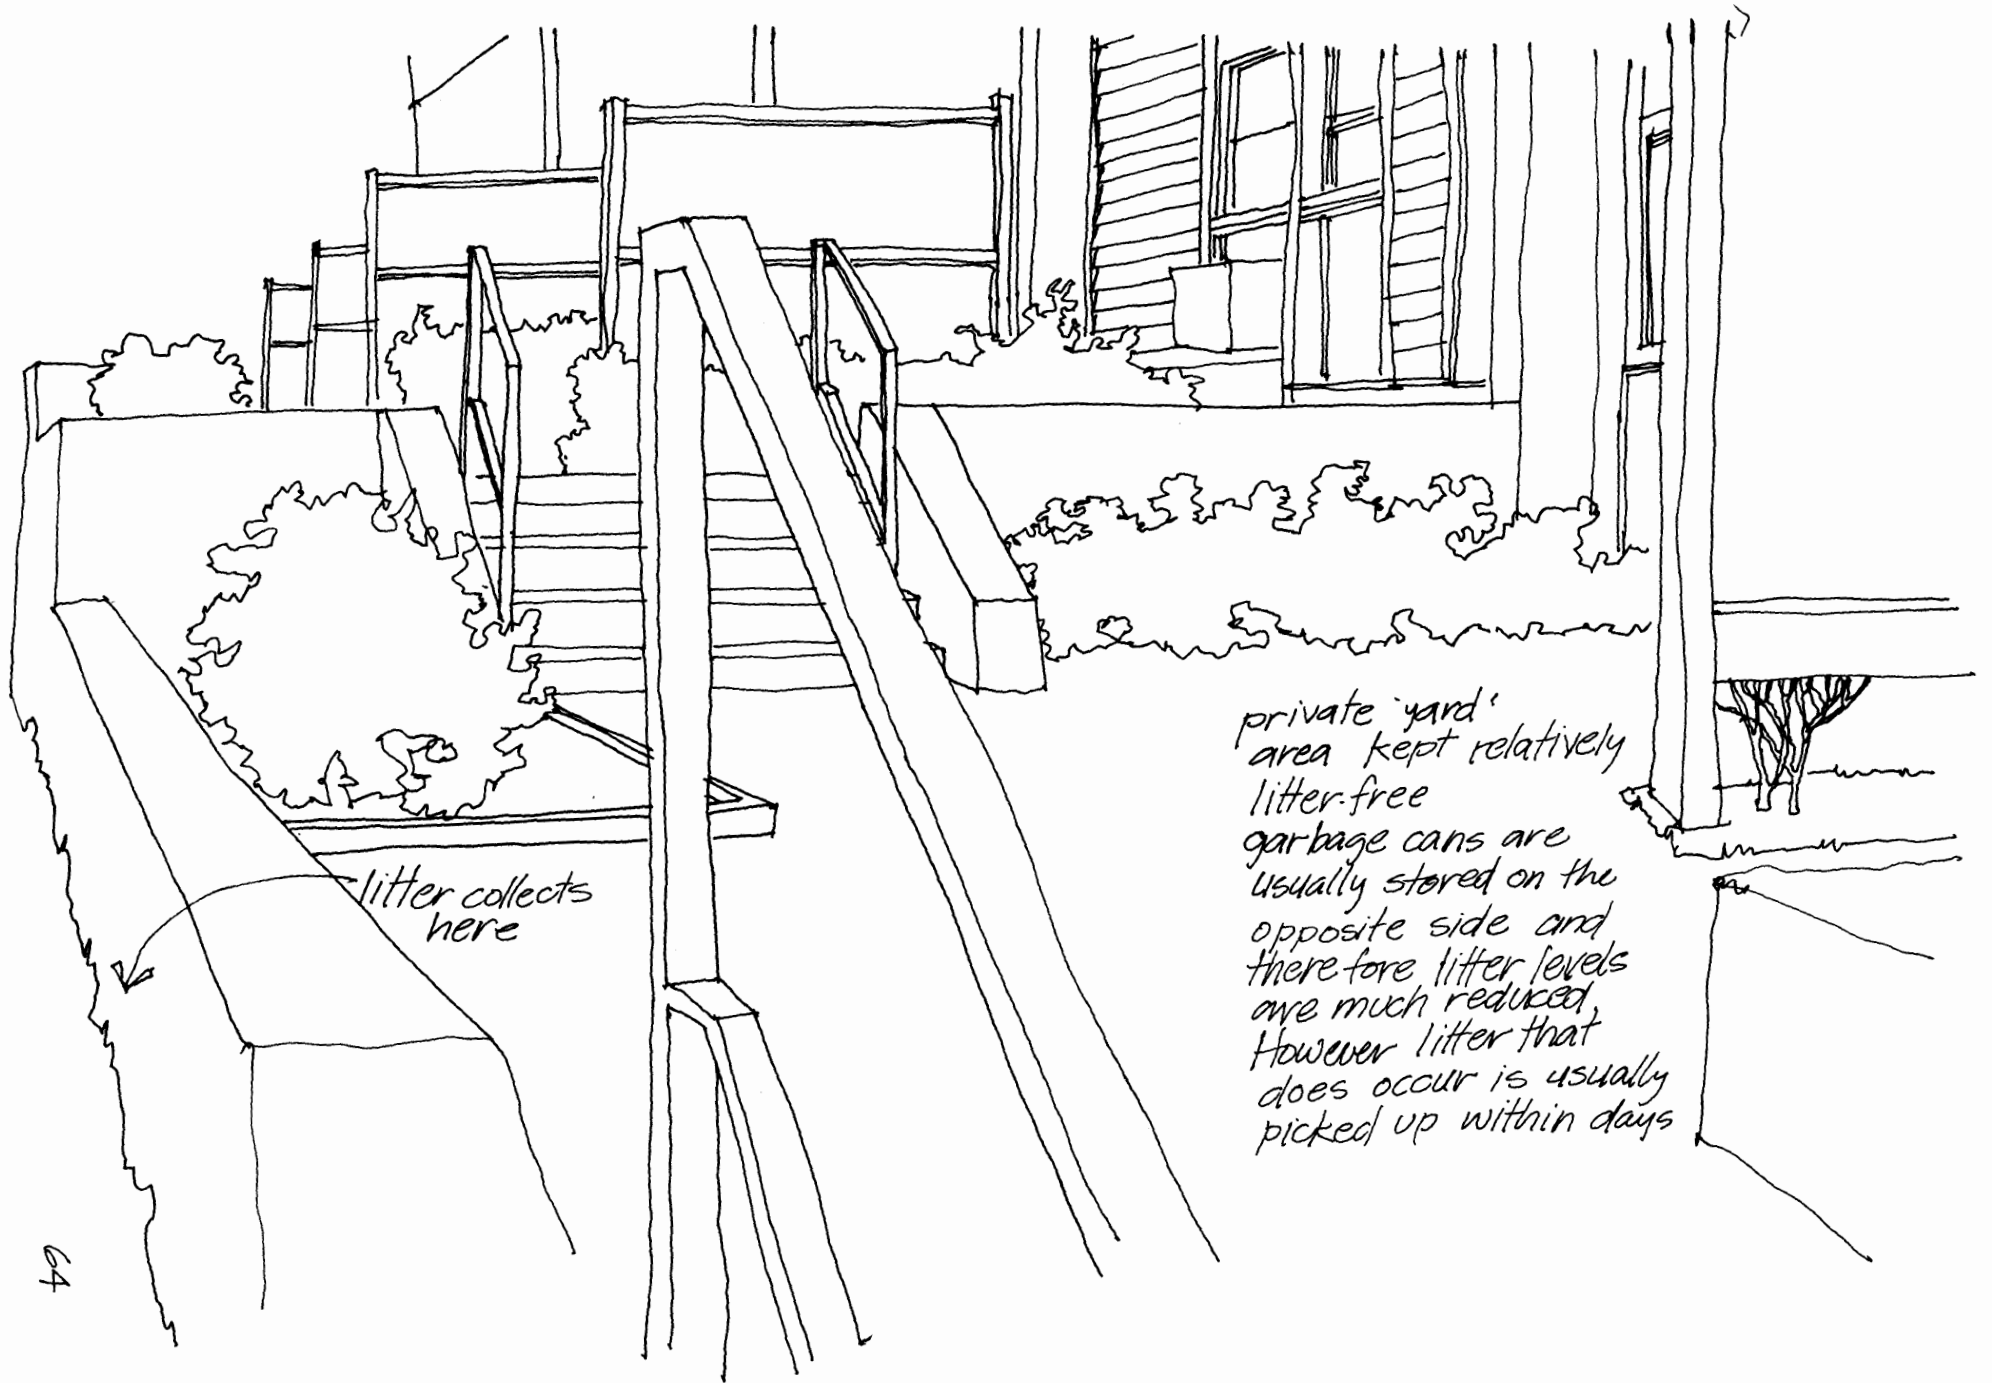 private 'yard'
area kept relatively
litter-free
garbage cans are
usually stored on the
opposite side and
therefore litter levels
are much reduced.
However litter that
does occur is usually
picked up within days
litter collects
here
64